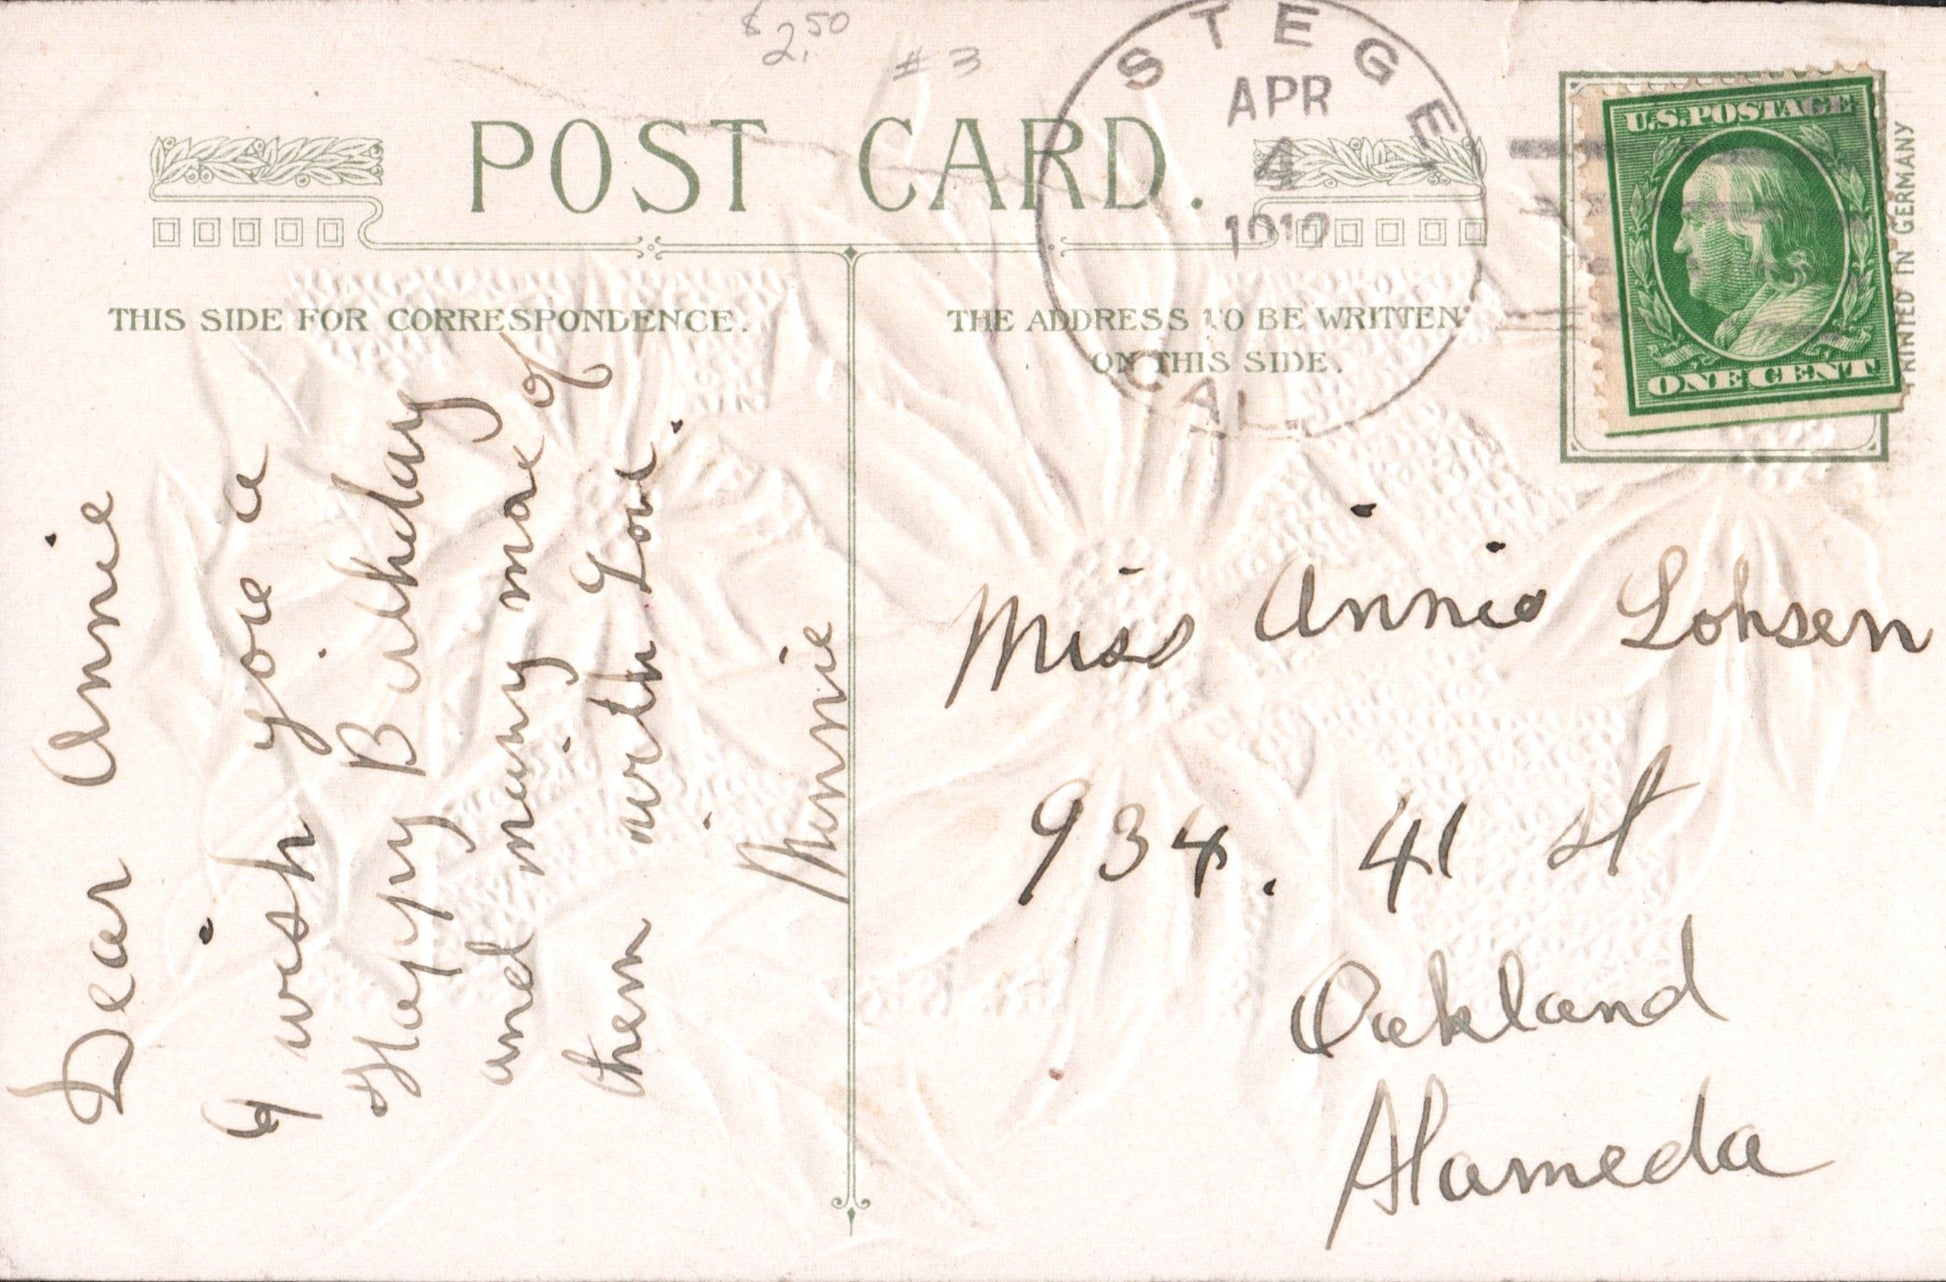 $2.50
#3
POST CARD.
STEGE
APR
4
CAL.
U.S. POSTAGE
ONE CENT
PRINTED IN GERMANY
THIS SIDE FOR CORRESPONDENCE.
THE ADDRESS TO BE WRITTEN
ON THIS SIDE.
Dear Annie
I wish you a
Happy Birthday
and many more of
them with Love.
Minnie
Miss Annie Lohsen
934. 41 st
Oakland
Alameda